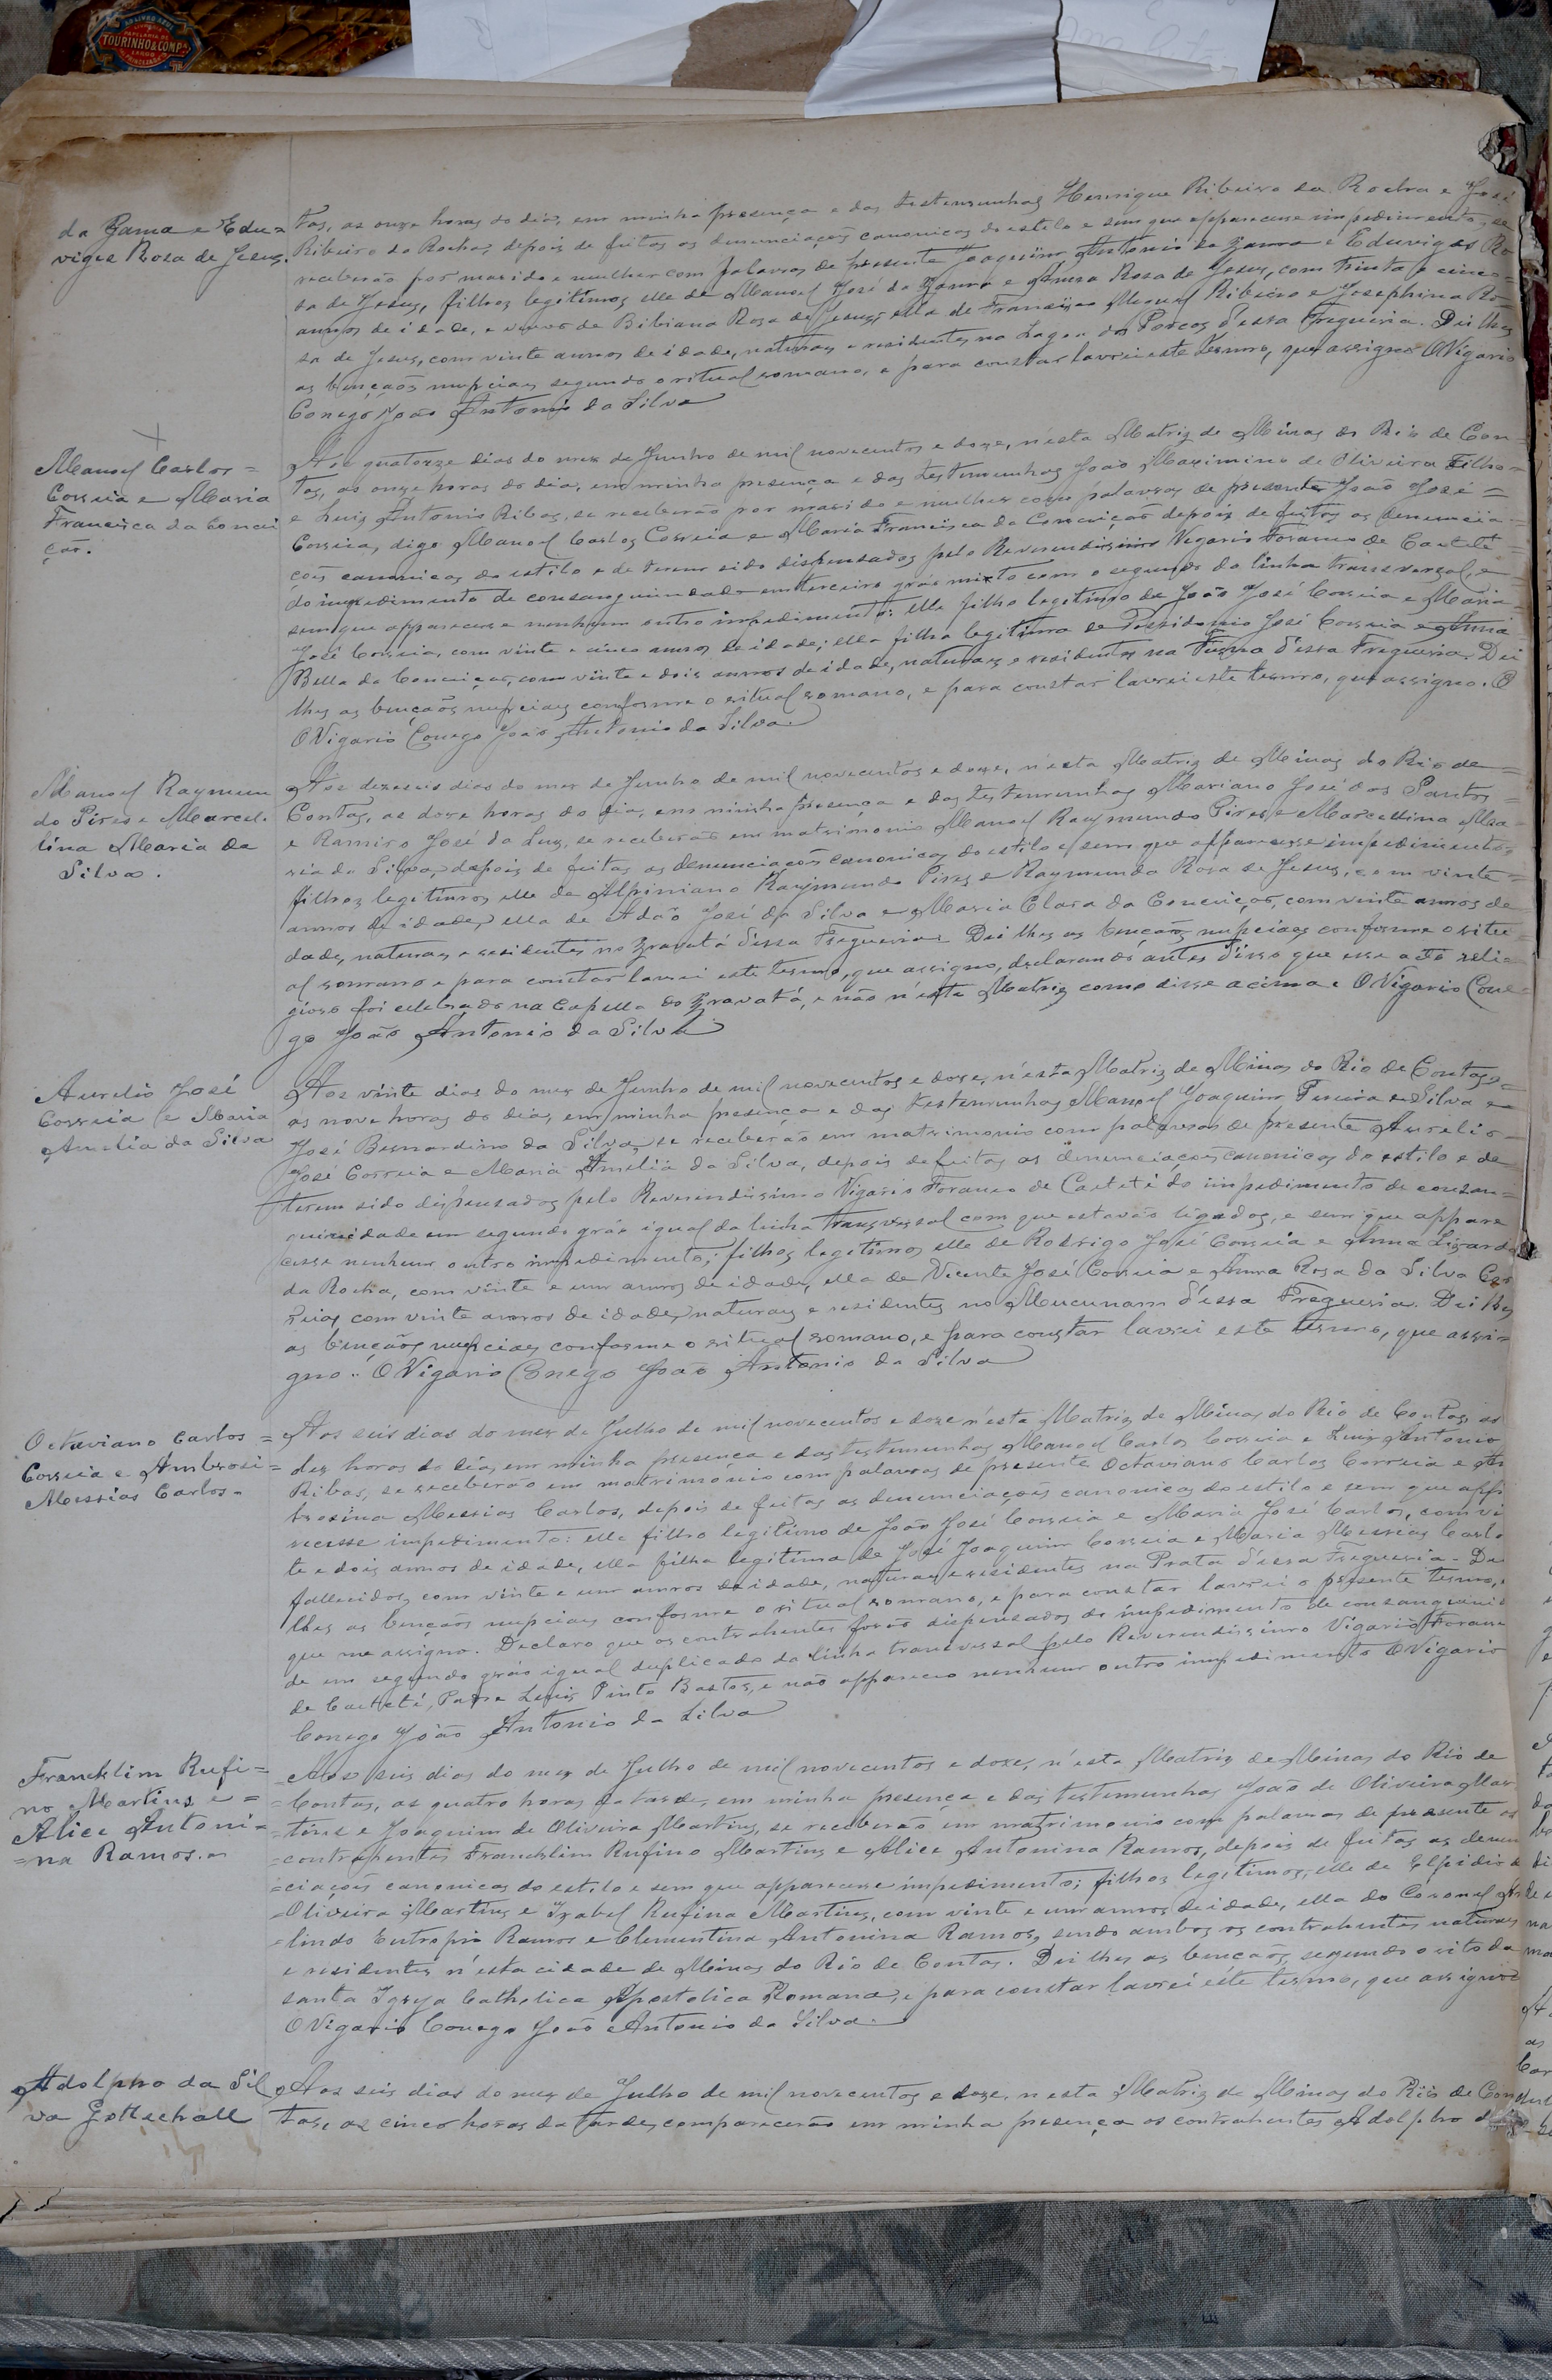 TOURINHO & COMPA
da Gama e Edu=
viges Rosa de Jesus.
tas, as onze horas do dia, em minha presença e das testemunhas Henrique Ribeiro da Rocha e José
Ribeiro da Rocha, depois de feitas as denunciações canonicas do estilo e sem que apparecesse impedimento, se
receberão por marido e mulher com palavras de presente Joaquim Antonio da Gama e Eduviges Ro
sa de Jesus, filhos legitimos elle de Manoel José da Gama e Anna Rosa de Jesus, com trinta e cinco
annos de idade, e viuvo de Bibiana Rosa de Jesus; ella de Francisco Ribeiro e Josephina Ro
sa de Jesus, com vinte annos de idade, naturaes e residentes na Lagoa dos Porcos d'essa Freguesia. Dei lhes
as bençãos nupciaes segundo o ritual romano, e para constar lavrei este termo, que assigno O Vigario
Conego João Antonio da Silva
Manoel Carlos =
Correia e Maria
Francisca da Concei
ção.
Aos quatorze dias do mez de Junho de mil novecentos e doze, n'esta Matriz de Minas do Rio de Con=
tas, as onze horas do dia, em minha presença e das testemunhas João Maximino de Oliveira Filho=
e Luiz Antonio Ribas, se receberão por marido e mulher com palavras de presente João José =
Correia, digo Manoel Carlos Correia e Maria Francisca da Conceição depois de feitas as denuncia=
ções canonicas do estilo e de terem sido dispensados pelo Reverendissimo Vigario Foraneo de Caeteté
do impedimento de consanguinidade em terceiro gráo mixto com o segundo da linha transversal, e
sem que apparecesse nenhum outro impedimento: elle filho legitimo de João José Correia e Maria
José Correia, com vinte e cinco annos de idade; ella filha legitima de Possidonio José Correia e Anna
Bella da Conceição, com vinte e dois annos de idade, naturaes e residentes na d'essa Freguesia. Dei
lhes as bençãos nupciaes conforme o ritual romano, e para constar lavrei este termo, que assigno. O
O Vigario Conego João Antonio da Silva.
Manoel Raymun
do Pires e Marcel.
lina Maria da
Silva.
Aos dezeseis dias do mez de Junho de mil novecentos e doze, n'esta Matriz de Minas do Rio de =
Contas, as doze horas do dia, em minha presença e das testemunhas Mariano José dos Santos =
e Ramiro José da Luz, se receberão em matrimonio Manoel Raymundo Pires e Marcellina Ma=
ria da Silva, depois de feitas as denunciações canonicas do estilo e sem que apparecesse impedimento,
filhos legitimos elle de Alpiniano Raymundo Pires e Raymunda Rosa de Jesus, com vinte =
annos de idade, ella de Adão José da Silva e Maria Clara da Conceição, com vinte annos de
dade, naturaes e residentes no Gravatá d'essa Freguesia. Dei lhes as bençãos nupciaes conforme o ritu=
al romano e para constar lavrei este termo, que assigno, declarando antes disso que esse acto reli=
gioso foi celebrado na Capella do Gravatá, e não n'esta Matriz como disse acima. O Vigario Cone=
go João Antonio da Silva
Aurelio José
Correia e Maria
Amelia da Silva
Aos vinte dias do mez de Junho de mil novecentos e doze, n'esta Matriz de Minas do Rio de Contas, =
as nove horas do dia, em minha presença e das testemunhas Manoel Joaquim Pereira e Silva e
José Bernardino da Silva, se receberão em matrimonio com palavras de presente Aurelio =
José Correia e Maria Amelia da Silva, depois de feitas as denunciações canonicas do estilo e de
terem sido dispensados pelo Reverendissimo Vigario Foraneo de Caeteté do impedimento de consan=
guinidade em segundo gráo igual da linha transversal com que estavão ligados, e sem que appare
cesse nenhum outro impedimento; filhos legitimos elle de Rodrigo José Correia e Anna Lizarda
da Rocha, com vinte e um annos de idade, ella de Vicente José Correia e Anna Rosa da Silva Cor
reia, com vinte annos de idade, naturaes e residentes no Mucunam d'essa Freguesia. Dei lhes
as bençãos nupciaes conforme o ritual romano, e para constar lavrei este termo, que assi=
gno. O Vigario Conego João Antonio da Silva
Octaviano Carlos =
Correia e Ambrosi=
Messias Carlos.
Aos seis dias do mez de Julho de mil novecentos e doze n'esta Matriz de Minas do Rio de Contas, as
dez horas do dia, em minha presença e das testemunhas Manoel Carlos Correia e Luiz Antonio
Ribas, se receberão em matrimonio com palavras de presente Octaviano Carlos Correia e Am
brosina Messias Carlos, depois de feitas as denunciações canonicas do estilo e sem que appa
recesse impedimento: elle filho legitimo de João José Correia e Maria José Carlos, com vi
te e dois annos de idade, ella filha legitima de José Joaquim Correia e Maria Messias Carlo
fallecidos, com vinte e um annos de idade, naturaes e residentes na Prata d'essa Freguesia. De
lhes as bençãos nupciaes conforme o ritual romano, e para constar lavrei o presente termo,
que me assigno. Declaro que os contrahentes forão dispensados do impedimento de consanguinid
de em segundo gráo igual duplicado da linha transversal pelo Reverendissimo Vigario Forane
de Caeteté, Padre Luiz Pinto Bastos, e não appareceo nenhum outro impedimento O Vigario
Conego João Antonio da Silva
Francklim Rufi=
no Martins e =
Alice Antoni=
=na Ramos.
Aos seis dias do mez de Julho de mil novecentos e doze, n'esta Matriz de Minas do Rio de
=Contas, as quatro horas da tarde, em minha presença e das testemunhas João de Oliveira Mar
=tins e Joaquim de Oliveira Martins, se receberão em matrimonio com palavras de presente os
=contrahentes Francklim Rufino Martins e Alice Antonina Ramos, depois de feitas as denun
=ciações canonicas do estilo e sem que apparecesse impedimento; filhos legitimos, elle de Elpidio de
=Oliveira Martins e Izabel Rufina Martins, com vinte e um annos de idade, ella do Coronel
=lindo Eutropio Ramos e Clementina Antonina Ramos, sendo ambos os contrahentes naturaes
e residentes n'esta cidade de Minas do Rio de Contas. Dei lhes as bençãos, segundo o rito da
santa Igreja Catholica Apostolica Romana, e para constar lavrei este termo, que assigno
O Vigario Conego João Antonio da Silva.
Adolpho da Sil
va Gottschall
Aos seis dias do mez de Julho de mil novecentos e doze, n'esta Matriz de Minas do Rio de Con
tas, as cinco horas da tarde, comparecerão em minha presença os contrahentes Adolpho